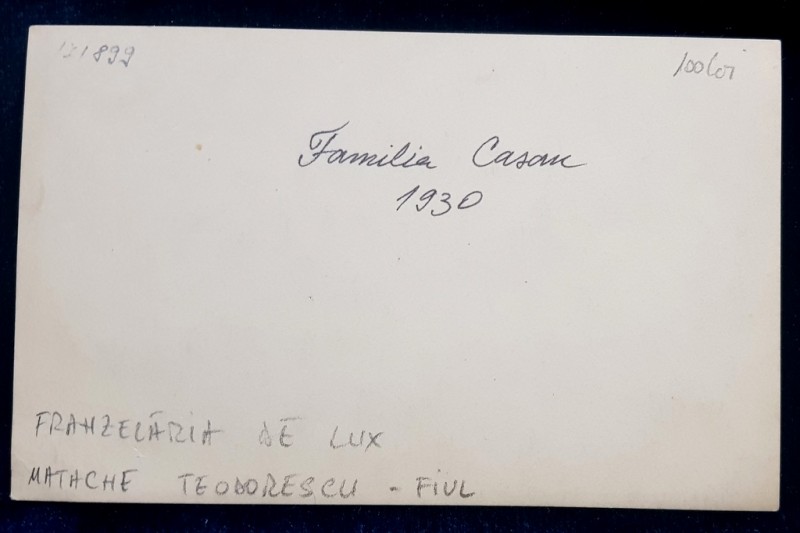 1899
100 lei
Familia Casan
1930
FRANZELĂRIA DE LUX
MATACHE TEODORESCU - FIUL